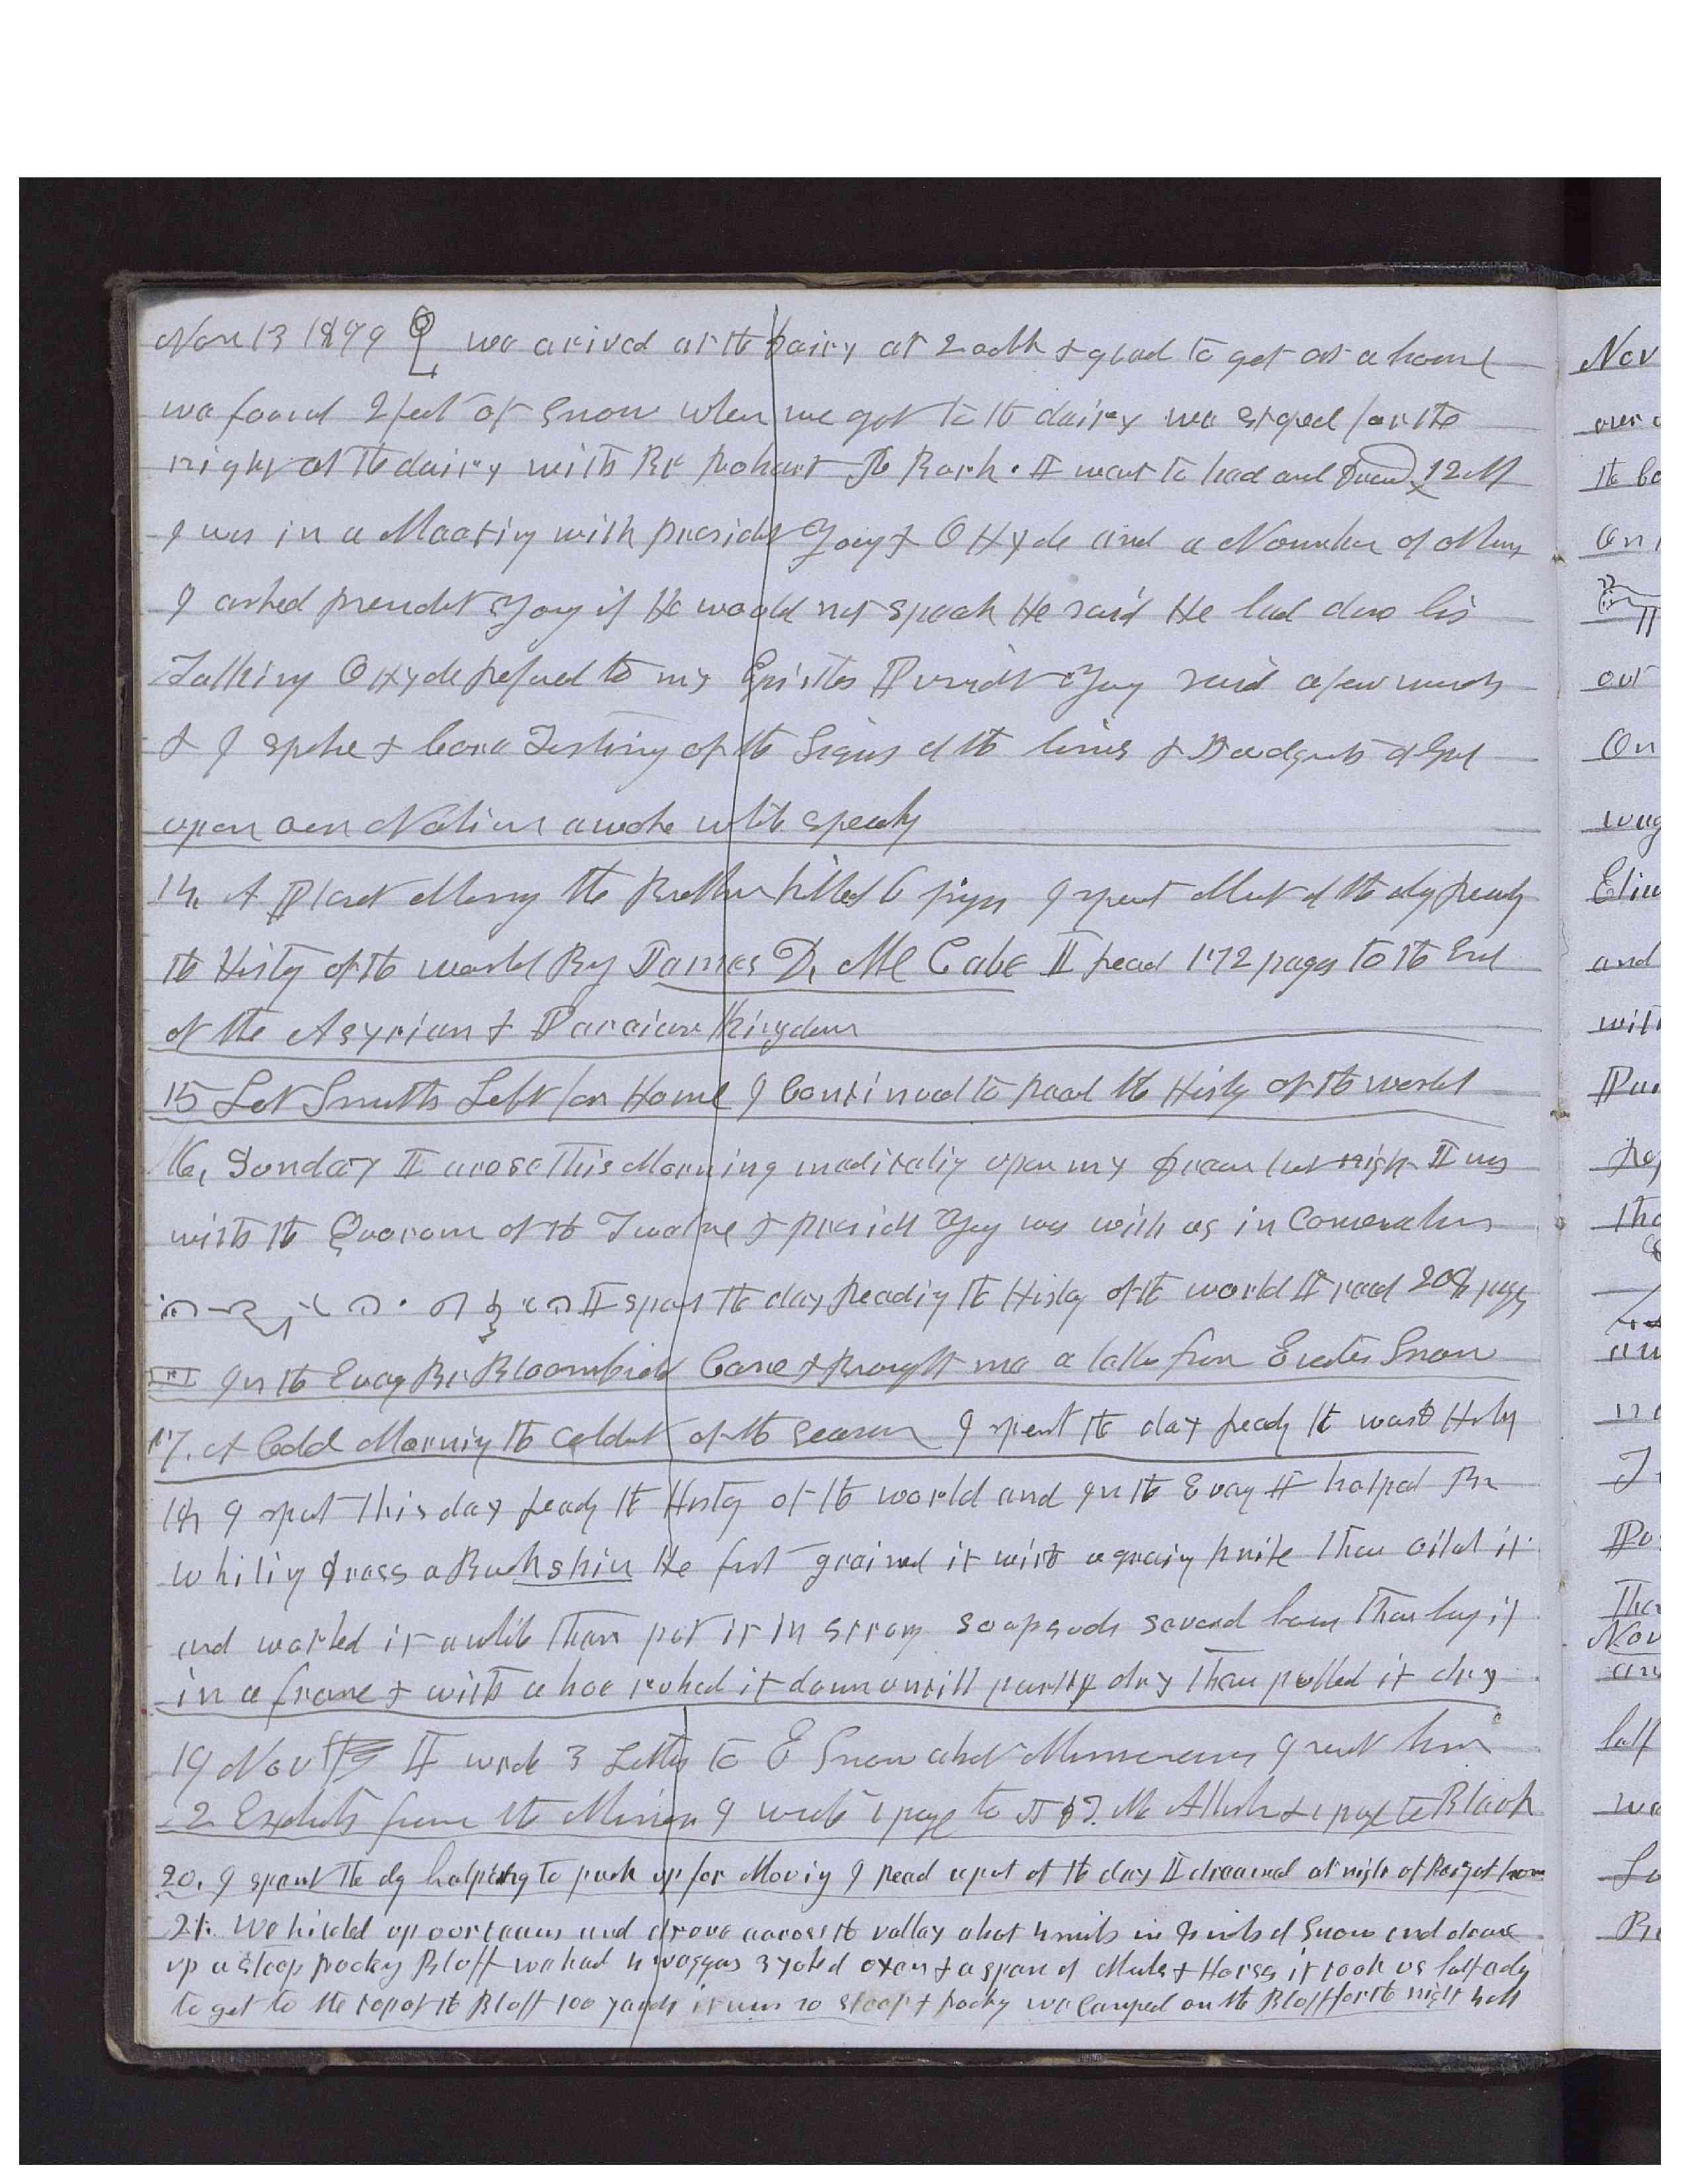 Nov 13 1879 we arived at the Dairy at 2 oclk & glad to get at a home
we found 2 feet of Snow when we got to the dairy we stped for the
night at the dairy with Br I went to bed and Dreamd 12 M
I was in a Meeting with presidet Young & O Hyde and a Number of others
I asked presidet Young if He would not speak He said He had done his
Talking O Hyde refered to my Epistles Presidt Young said a few words
& I spoke & bore Testimony of the Signs of the times & Judgmts of God
upon our Nation awoke while speakg
14, A Plesat Morng the Brethrn killed 6 pigs I spent Most of the day readg
the History of the world By James D, Mc Cabe I read 172 pages to the End
of the Asyrian & Kingdoms
15 Lot Smith Left for Home I continued to read the Histy of the world
16, Sunday I arose this Morning meditatig upon my Dream last night I was
with the Quorum of the Twelve & presidt Young was with us in
I spent the day Readig the Histy of the world I read 208 pages
In the Eveg Br Bloomfield Came & Brought me a letter from Erastus Snow
17. A Cold Mornig the coldest of the season I spent the day readg the world Histy
18, I spent this day readg the Histy of the world and in the Eveg I helped Br
Whitig Dress a Buckskin He first grained it with a graing knife then oiled it
and worked it awhile then put it in strong soapsuds several hours then hung it
in a frame & with a hoe rubed it down untill partly dry then pulled it dry
19 Nov I wrote 3 Letters to E Snow I sent him
2 from the I wrote 1 page to Mc Allister & 1 page to Black
20. I spent the dy helping to pack up for Movig I read a part of the day I dreamed at night of
21. We hitched up our teams and drove across the valley about 4 miles in of Snow and drove
up a steep rocky Bluff we had 4 waggons 3 yoked oxen & a span of Mules & Horses it took us half a dy
to get to the top of the Bluff 100 yards it was so steep & rocky we camped on the Bluff for the night 4 M